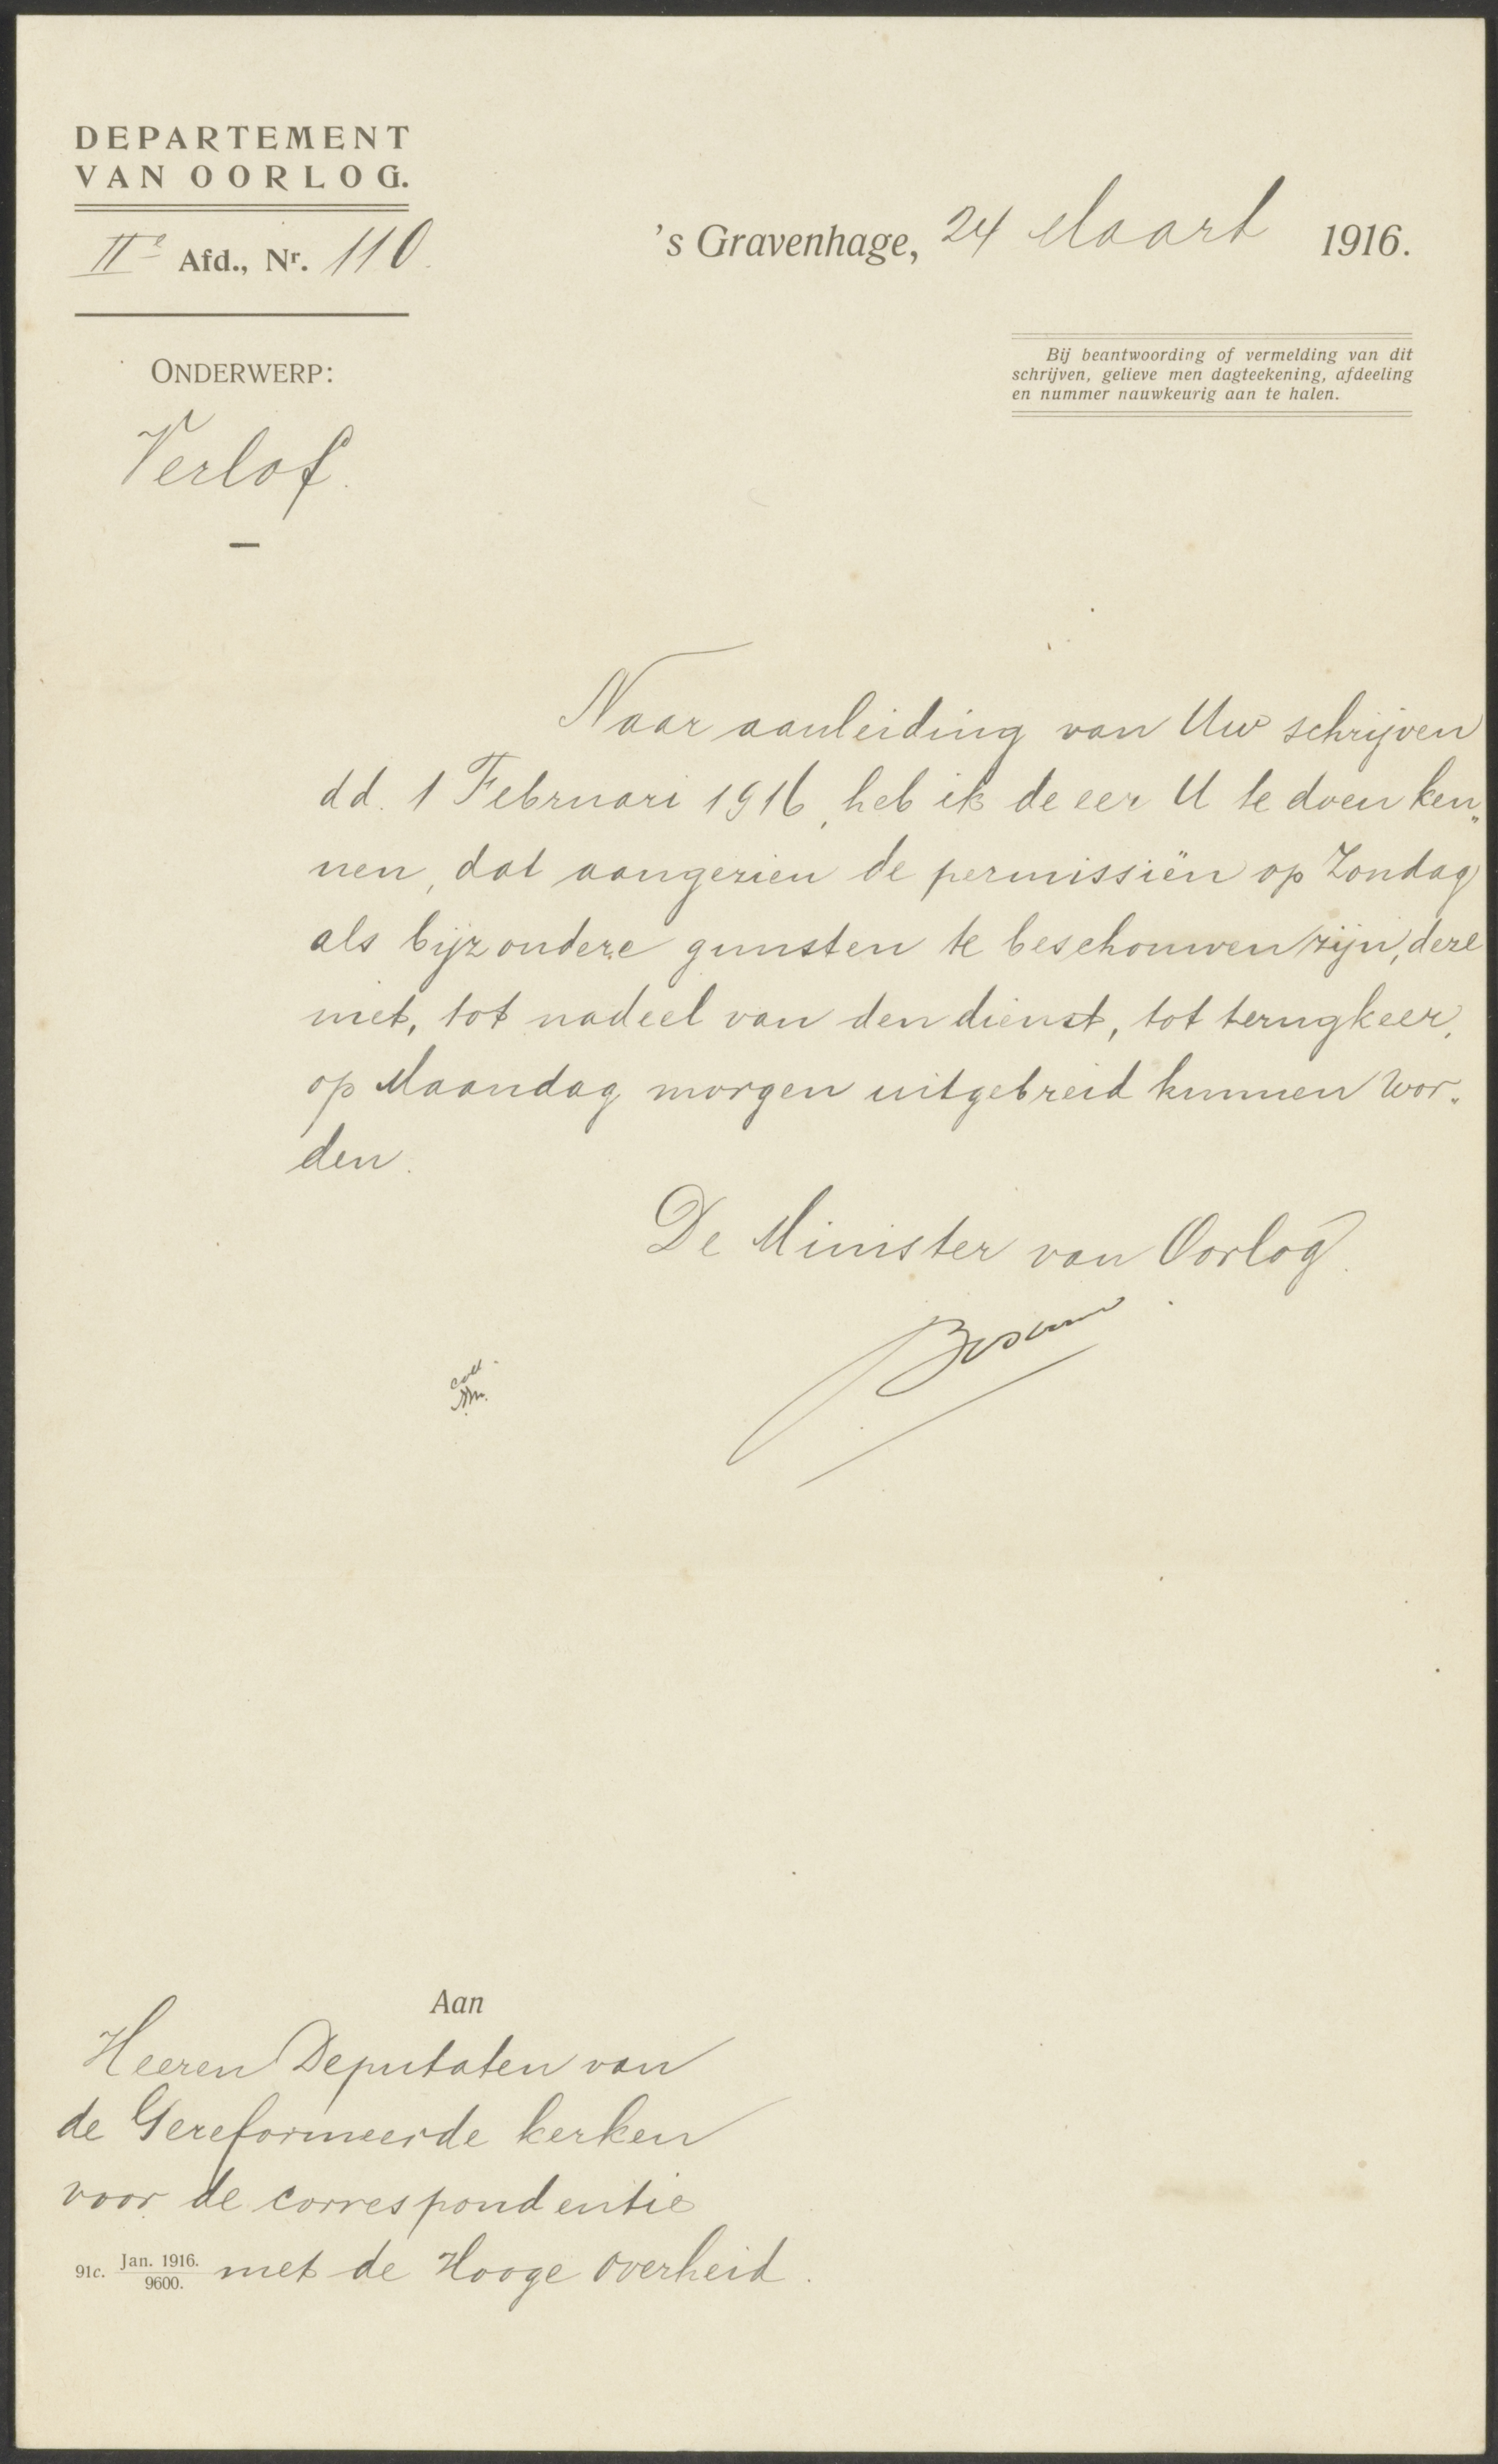 DEPARTEMENT
VAN OORLOG.
IIe Afd., Nr. 110.
's Gravenhage, 24 Maart 1916.
Bij beantwoording of vermelding van dit
schrijven, gelieve men dagteekening, afdeeling
en nummer nauwkeurig aan te halen.
ONDERWERP:
Verlof.
Naar aanleiding van Uw schrijven
dd. 1 Februari 1916, heb ik de eer U te doen ken„
nen, dat aangezien de permissiën op Zondag
als bijzondere gunsten te beschouwen zijn, deze
niet, tot nadeel van den dienst, tot terugkeer,
op Maandag morgen uitgebreid kunnen wor„
den.
De Minister van Oorlog.
Bosboom
coll.
Aan
Heeren Deputaten van
de Gereformeerde kerken
voor de correspondentie
met de Hooge Overheid.
91c. Jan. 1916.
9600.